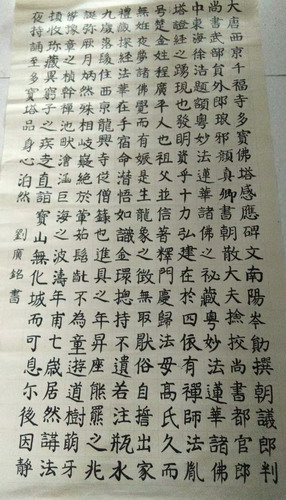 大唐西京千福寺多寶佛塔感應碑文南陽岑勛撰朝議郎判
尚書武部員外郎琅邪顏真卿書朝散大夫撿挍尚書都官郎
中東海徐浩題額粵妙法蓮華諸佛之秘藏粵妙法蓮華諸佛
塔證經之踴現也發明資乎十力弘建在於四依有禪師法胤
号楚金姓程廣平人也祖父並信著釋門慶歸法母高氏久而
無妊夜夢諸佛覺而有娠是生龍象之徵無猒俗自誓出家
禮藏探經法華在手宿命潛悟如識金環揔持不遺若注瓶水
九歲落髮住西京龍興寺從僧籙也進具之年昇座熊羆之兆
誕弥厥月炳然殊相岐嶷絕於葷茹髫齔不為童遊道樹萌牙
聳豫章之楨幹禪池畎澮涵巨海之波濤年甫七歲居然講法
頓收珍藏異窮子之疾走直詣寶山無化城而可息尓後因靜
夜持誦至多寶塔品身心泊然 劉廣銘書